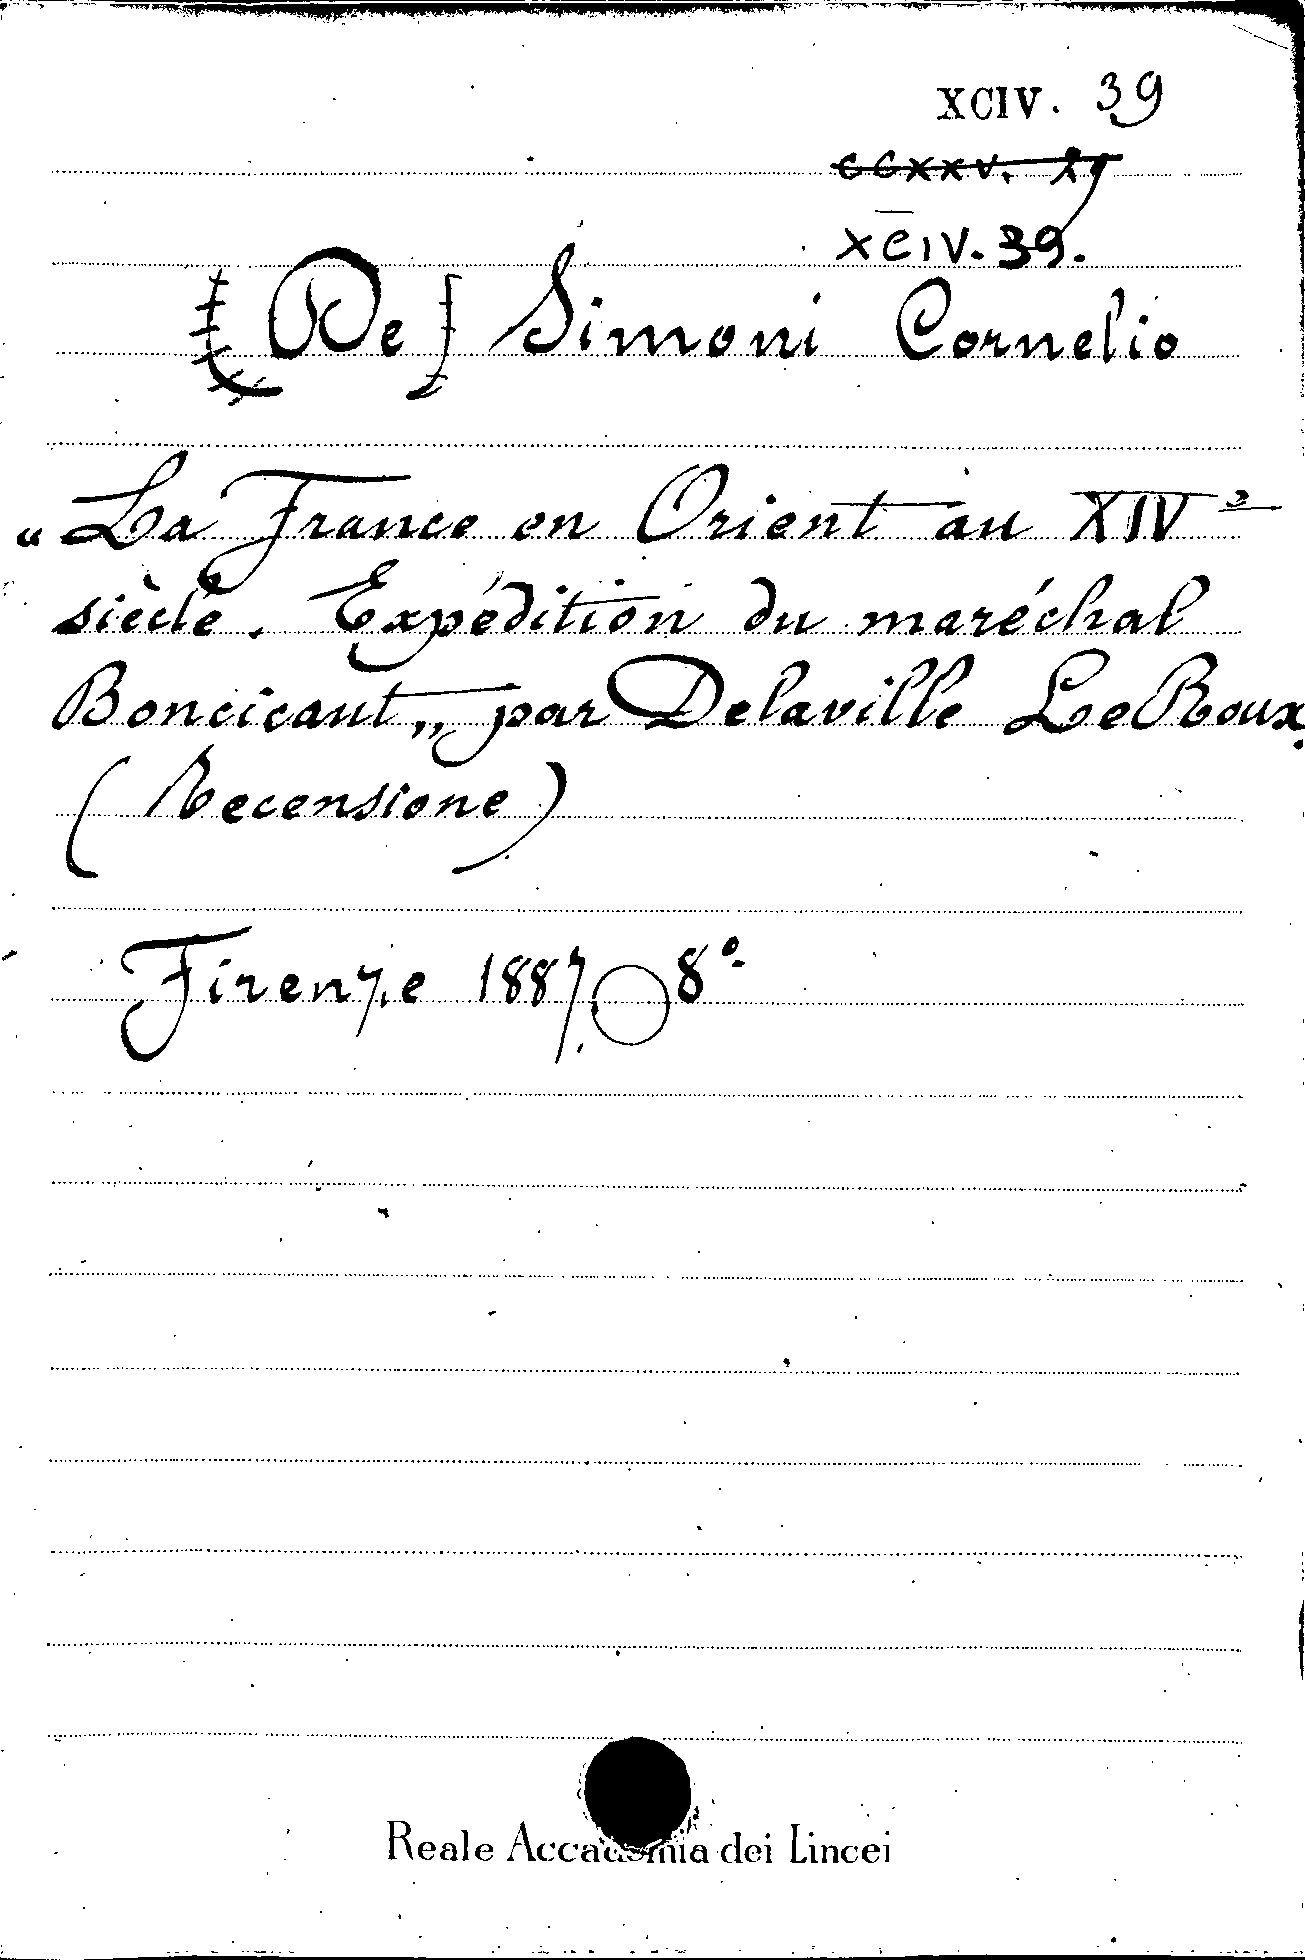 XCIV. 39
CCXXV. 29
XCIV. 39.
[De] Simoni Cornelio
"La France en Orient au XIVe
siècle. Expédition du maréchal
Boncicaut„ par Delaville Le Roux.
(Recensione)
Firenze 1887. 8°
Reale Accademia dei Lincei